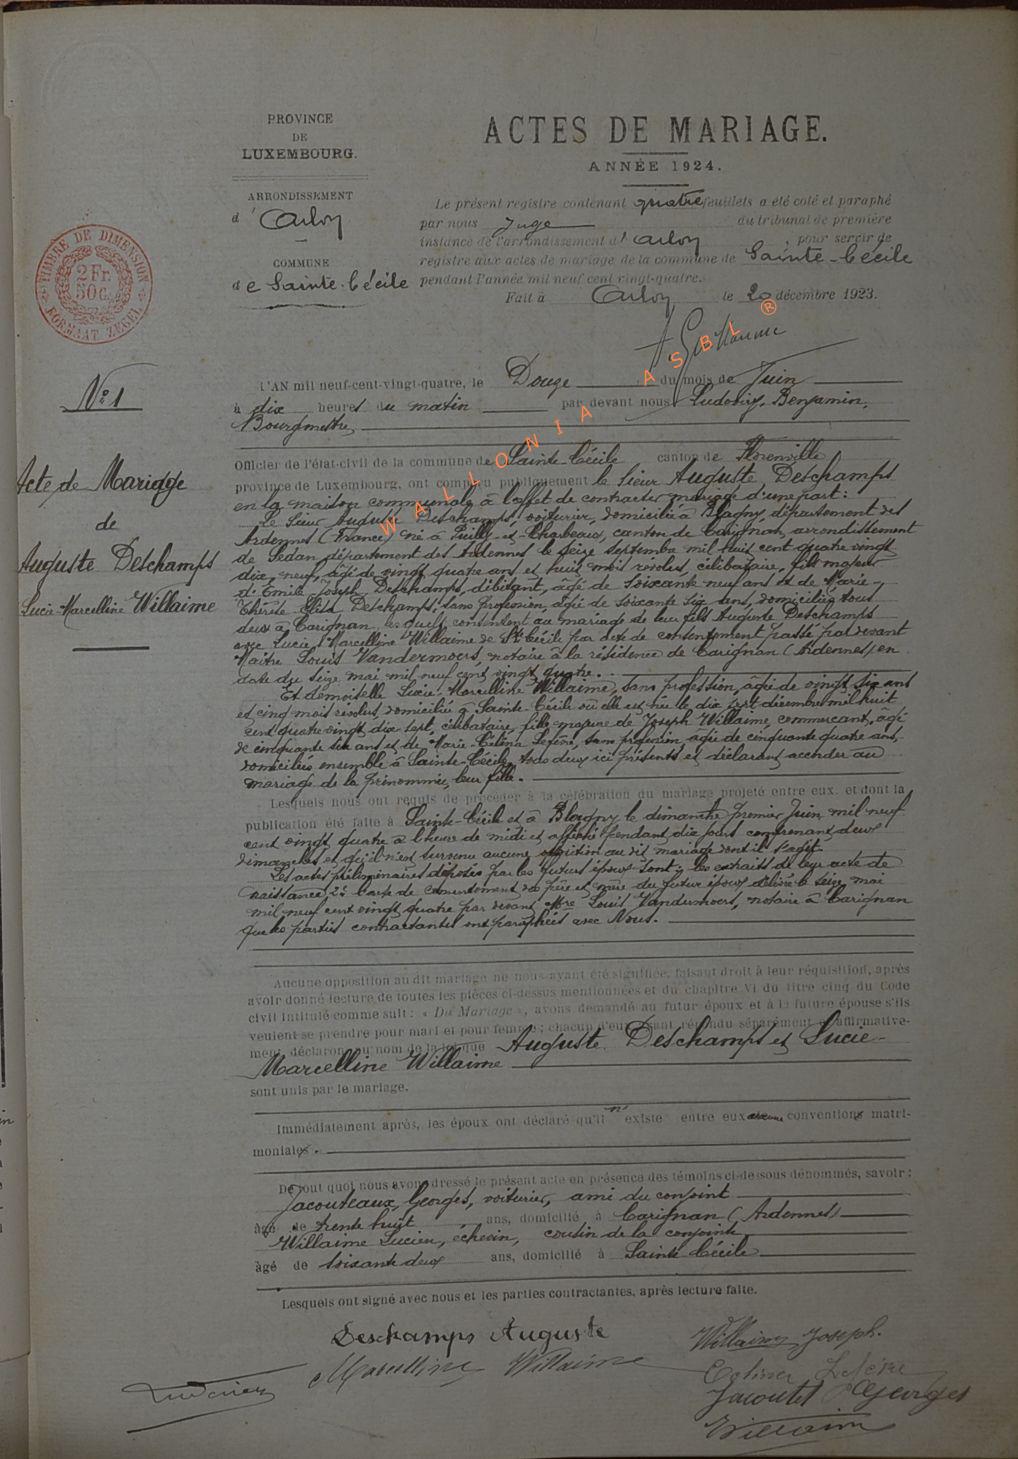 PROVINCE
DE
LUXEMBOURG.
ARRONDISSEMENT
d'Arlon
COMMUNE
de Sainte-Cécile
TIMBRE DE DIMENSION
2 Fr.
50 c.
FORMAAT ZEGEL
ACTES DE MARIAGE.
ANNÉE 1924.
Le présent registre contenant quatre feuillets a été coté et paraphé
par nous Juge du tribunal de première
instance de l'arrondissement d'Arlon, pour servir de
registre aux actes de mariage de la commune de Sainte-Cécile
pendant l'année mil neuf cent vingt-quatre.
Fait à Arlon le 20 décembre 1923.
WALLONIA ASBL ®
No 1
Acte de Mariage
de
Auguste Deschamps
Lucie Marcelline Willaime
L'AN mil neuf-cent-vingt-quatre, le Douze du mois de Juin
à dix heures du matin par devant nous Ludovicy, Benjamin,
Bourgmestre,
Officier de l'état-civil de la commune de Sainte-Cécile canton de Florenville
province de Luxembourg, ont comparu publiquement le Sieur Auguste Deschamps
en la maison communale à l'effet de contracter mariage d'une part:
Le Sieur Auguste Deschamps, voiturier, domicilié à Blagny, département des
Ardennes (France) né à Puilly-et-Charbeaux, canton de Carignan, arrondissement
de Sedan, département des Ardennes le seize septembre mil huit cent quatre vingt
dix neuf, âgé de vingt quatre ans et huit mois révolus, célibataire, fils majeur
d'Emile Joseph Deschamps, débitant, âgé de soixante neuf ans et de Marie
Thérèse Elisa Deschamps, sans profession, âgée de soixante six ans, domiciliés tous
deux à Carignan, lesquels consentent au mariage de leur fils Auguste Deschamps
avec Lucie Marcelline Willaime de Ste Cécile par acte de consentement passé par devant
Maître Louis Vandermoers, notaire à la résidence de Carignan (Ardennes) en
date du seize mai mil neuf cent vingt quatre.
Et demoiselle Lucie Marcelline Willaime, sans profession, âgée de vingt six ans
et cinq mois révolus, domiciliée à Sainte-Cécile où elle est née le dix sept décembre mil huit
cent quatre vingt dix sept, célibataire, fille majeure de Joseph Willaime, commerçant, âgé
de cinquante six ans et de Marie Célina Lefèvre, sans profession âgée de cinquante quatre ans,
domiciliés ensemble à Sainte-Cécile, tous deux ici présents et déclarant accéder au
mariage de la prénommée, leur fille.
Lesquels nous ont requis de procéder à la célébration du mariage projeté entre eux, et dont la
publication été faite à Sainte-Cécile et à Blagny le dimanche premier Juin mil neuf
cent vingt quatre à l'heure de midi et affiché pendant dix jours comprenant deux
dimanches et qu'il n'est survenu aucune opposition au dit mariage dont il s'agit.
Les actes préliminaires déposés par les futurs époux sont les extraits de leur acte de
naissance, 2° l'acte de consentement des père et mère du futur époux délivré le seize mai
mil neuf cent vingt quatre par devant Mtre Louis Vandermoers, notaire à Carignan
que les parties contractantes ont paraphées avec Nous.
Aucune opposition au dit mariage ne nous ayant été signifiée, faisant droit à leur réquisition, après
avoir donné lecture de toutes les pièces ci-dessus mentionnées et du chapitre VI du titre cinq du Code
civil intitulé comme suit: « Du Mariage », avons demandé au futur époux et à la future épouse s'ils
veulent se prendre pour mari et pour femme; chacun d'eux ayant répondu séparément et affirmative-
ment, déclarons au nom de la loi que Auguste Deschamps et Lucie
Marcelline Willaime
sont unis par le mariage.
Immédiatement après, les époux ont déclaré qu'il n'existe entre eux aucune conventions matri-
moniales.
De tout quoi, nous avons dressé le présent acte en présence des témoins ci-dessous dénommés, savoir:
Jacouteaux, Georges, voiturier, ami du conjoint
âgé de trente huit ans, domicilié à Carignan (Ardennes)
Willaime Lucien, échevin, cousin de la conjointe
âgé de soixante deux ans, domicilié à Sainte Cécile
Lesquels ont signé avec nous et les parties contractantes, après lecture faite.
Deschamps Auguste
Willaime Joseph.
Marcelline Willaime
Celina Lefèvre
Ludovicy
Jacoutet Georges
Willaime